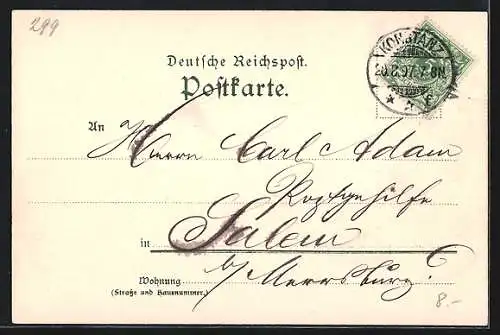 299
KONSTANZ
20.2.97.7-8N.
Deutsche Reichspost.
Postkarte.
An
Herrn Carl Adam
in Salem
b/ Meersburg
Wohnung
(Straße und Hausnummer.)
8.-